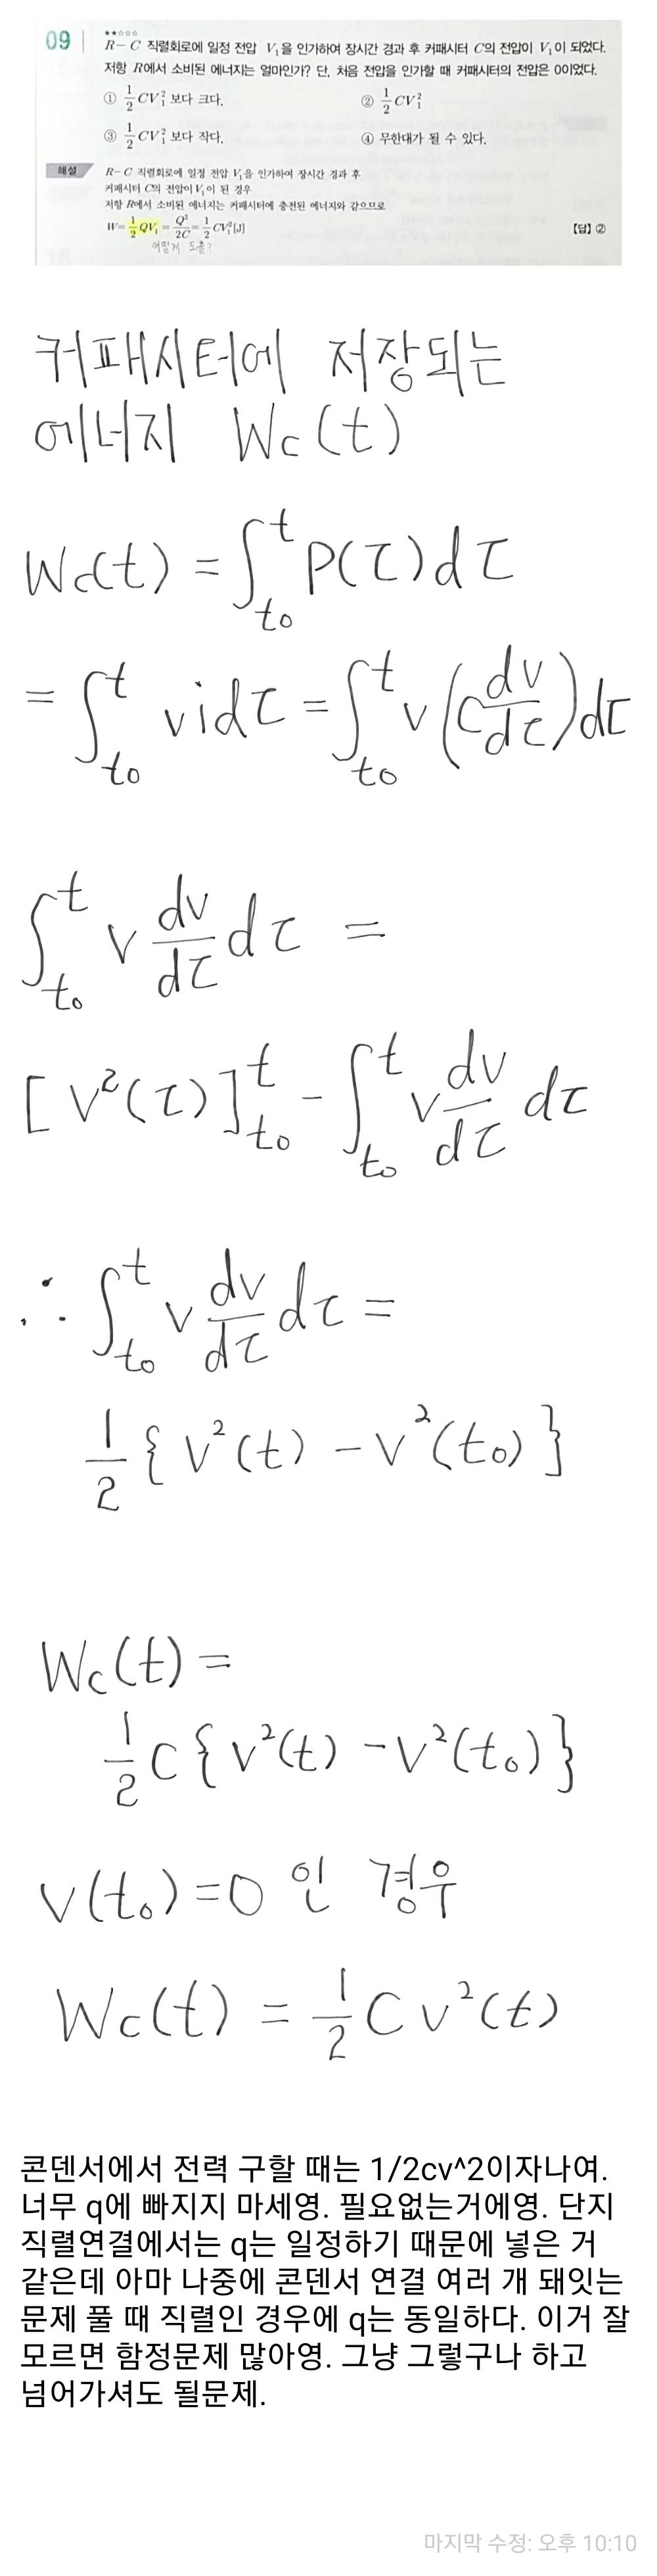 09 ★★☆☆☆
R-C 직렬회로에 일정 전압 V₁을 인가하여 장시간 경과 후 커패시터 C의 전압이 V₁이 되었다.
저항 R에서 소비된 에너지는 얼마인가? 단, 처음 전압을 인가할 때 커패시터의 전압은 0이었다.
① 1/2 CV₁² 보다 크다. ② 1/2 CV₁²
③ 1/2 CV₁² 보다 작다. ④ 무한대가 될 수 있다.
해설 R-C 직렬회로에 일정 전압 V₁을 인가하여 장시간 경과 후
커패시터 C의 전압이 V₁이 된 경우
저항 R에서 소비된 에너지는 커패시터에 충전된 에너지와 같으므로
W = 1/2 QV₁ = Q²/2C = 1/2 CV₁²[J] 【답】②
어떻게 도출?
커패시터에 저장되는
에너지 Wc(t)
Wc(t) = ∫_{t₀}^{t} P(τ)dτ
= ∫_{t₀}^{t} vidτ = ∫_{t₀}^{t} v(C dv/dτ)dτ
∫_{t₀}^{t} v dv/dτ dτ =
[v²(τ)]_{t₀}^{t} - ∫_{t₀}^{t} v dv/dτ dτ
∴ ∫_{t₀}^{t} v dv/dτ dτ =
1/2 {v²(t) - v²(t₀)}
Wc(t) =
1/2 C{v²(t) - v²(t₀)}
v(t₀)=0 인 경우
Wc(t) = 1/2 C v²(t)
콘덴서에서 전력 구할 때는 1/2cv^2이자나여.
너무 q에 빠지지 마세영. 필요없는거에영. 단지
직렬연결에서는 q는 일정하기 때문에 넣은 거
같은데 아마 나중에 콘덴서 연결 여러 개 돼잇는
문제 풀 때 직렬인 경우에 q는 동일하다. 이거 잘
모르면 함정문제 많아영. 그냥 그렇구나 하고
넘어가셔도 될문제.
마지막 수정: 오후 10:10